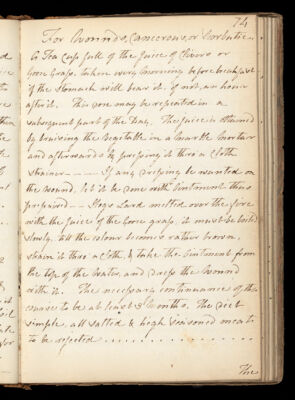 74
For Wounds, Cancerous, or Scorbutic.
A Tea Cup full of the Juice of Clivers or
Goose Grass. taken every morning before breakfast
if the stomach will bear it. if not, an hour
after it. This one may be repeated in a
subsequent part of the Day. The Juice is obtained
by bruising the Vegitable in a Marble Mortar
and afterwards by pressing it thro a Cloth
strainer — If any Dressing be wanted on
the wound, let it be done with Ointment thus
prepared — Hogs Lard melted over the fire
with the Juice of the Goose grass, it must be boil'd
slowly, till the colour becomes rather brown,
strain it thro a Cloth, & take the Ointment from
the top of the Water, and Dress the Wound
with it. The necessary continuance of this
course to be at least 3 Months. The diet
simple, all salted & high seasoned meats
to be rejected . . . . . . . . . . . . . . .
The